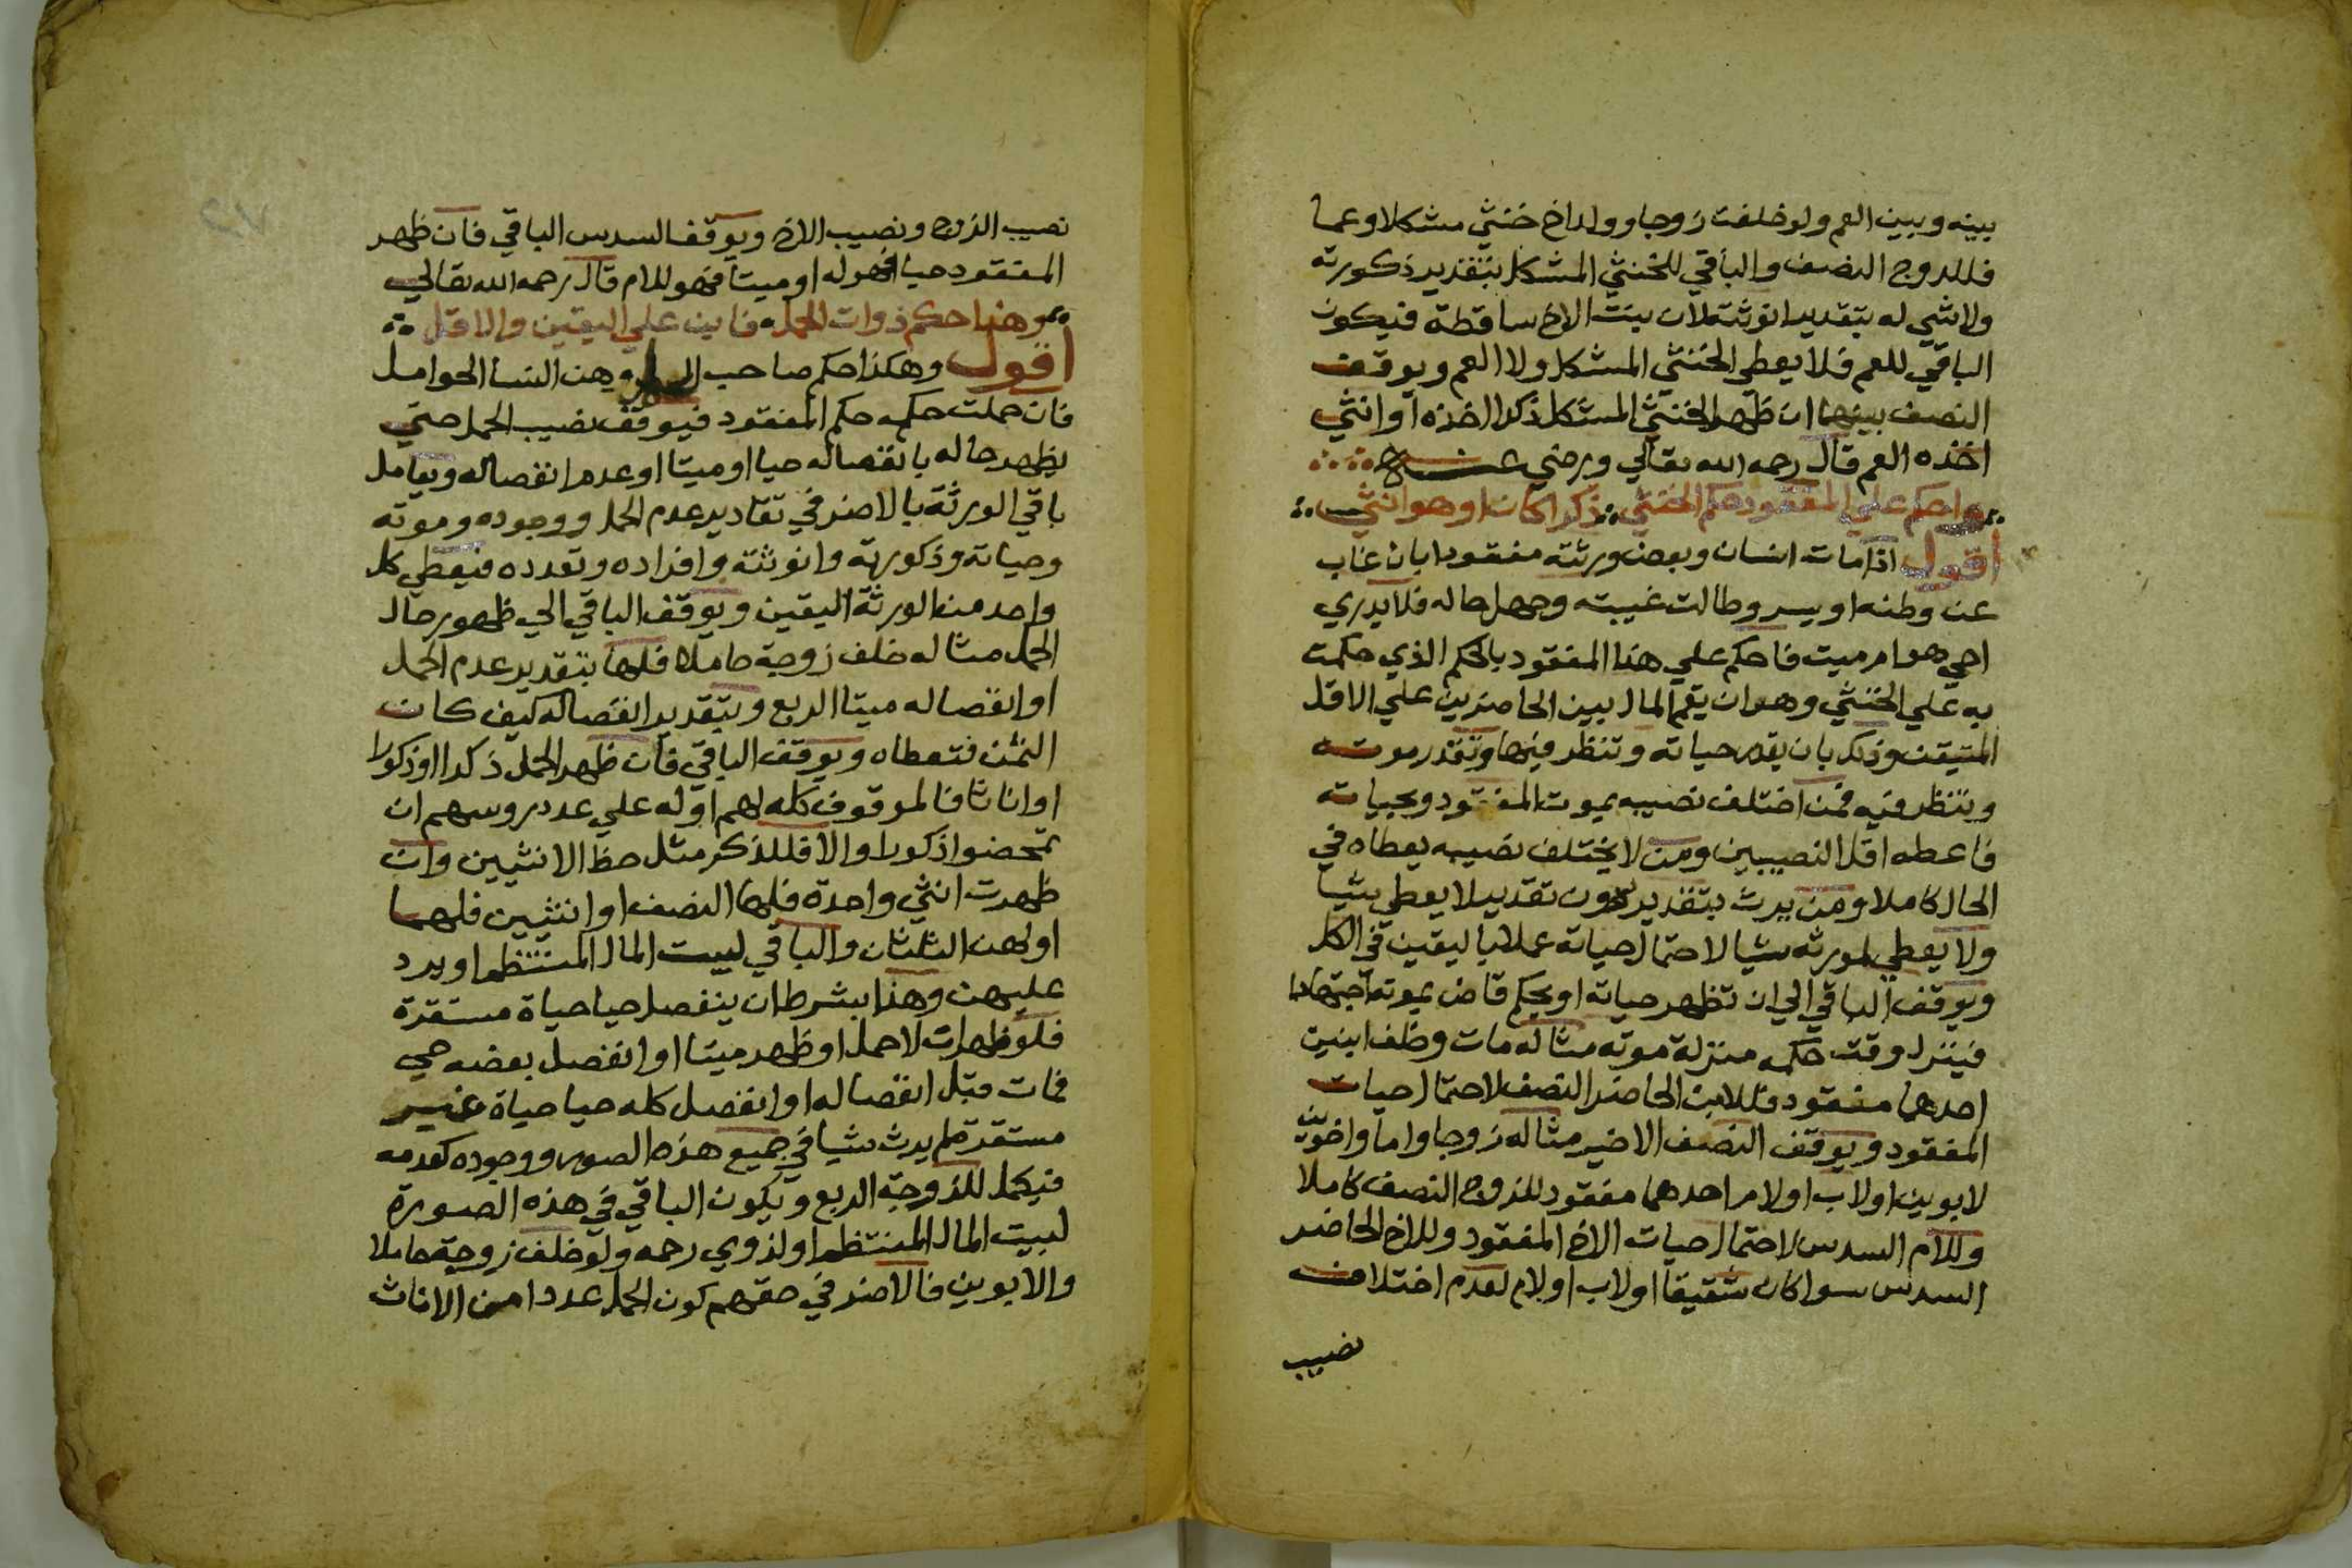 بينه وبين العم ولو خلفت زوجا وولد اخ خنثي مشكلا وعما
فللزوج النصف والباقي للخنثي المشكل بتقدير ذكورته
ولا شي له بتقدير انوثته لان بنت الاخ ساقطة فيكون
الباقي للعم فلا يعطي الخنثي المشكل ولا العم ويوقف
النصف بينهما ان ظهر الخنثي المشكل ذكرا اخذه او انثي
اخذه العم قال رحمه الله تعالي ورضي عنه
واحكم علي المفقود حكم الخنثي ذكرا كان او هو انثي
اقول اذا مات انسان وبعض ورثته مفقود بان غاب
عن وطنه او يسر وطالت غيبته وجهل حاله فلا يدري
احي هو ام ميت فاحكم علي هذا المفقود بالحكم الذي حكمت
به علي الخنثي وهو ان يقم المال بين الحاضرين علي الاقل
المتيقن وذلك بان يقدر حياته وتنظر فيها وتقدر موته
وتنظر فيه فمن اختلف نصيبه بموت المفقود وبحياته
فاعطه اقل النصيبين ومن لا يختلف نصيبه يعطاه في
الحال كاملا ومن يرث بتقدير دون تقدير لا يعطي شيا
ولا يعطي لمورثه شيا لاحتمال حياته عملا باليقين في الكل
ويوقف الباقي الي ان تظهر حياته او يحكم قاض بموته اجتهادا
فينزل وقت حكمه منزلة موته مثاله مات وخلف ابنين
احدهما مفقود فللابن الحاضر النصف لاحتمال حيات
المفقود ويوقف النصف الاخير مثاله زوجا واما واخوين
لابوين او لاب او لام احدهما مفقود للزوج النصف كاملا
وللام السدس لاحتمال حيات الاخ المفقود وللاخ الحاضر
السدس سوا كان شقيقا او لاب او لام لعدم اختلاف
نصيب
نصيب الزوج ونصيب الاخ ويوقف السدس الباقي فان ظهر
المفقود حيا فهو له او ميتا فهو للام قال رحمه الله تعالي
وهذا حكم ذوات الحمل فابن علي اليقين والاقل
اقول وهكذا حكم صاحب وهن النسا الحوامل
فان حملت حكمه حكم المفقود فيوقف نصيب الحمل حتي
يظهر حاله بانفصاله حيا او ميتا او عدم انفصاله ويعامل
باقي الورثة بالاضر في تقادير عدم الحمل ووجوده وموته
وحياته وذكورته وانوثته وافراده وتعدده فيعطي كل
واحد من الورثة اليقين ويوقف الباقي الي ظهور حال
الحمل مثاله خلف زوجة حاملا فلها بتقدير عدم الحمل
او انفصاله ميتا الربع وبتقدير انفصاله كيف كان
الثمن فتعطاه ويوقف الباقي فان ظهر الحمل ذكرا او ذكورا
او اناثا فالموقوف كله لهم او له علي عدد روسهم ان
تمحضوا ذكورا والا فللذكر مثل حظ الانثيين وان
ظهرت انثي واحدة فلها النصف او انثيين فلهما
او لهن الثلثان والباقي لبيت المال المنتظم او يرد
عليهن وهذا بشرط ان ينفصل حيا حياة مستقرة
فلو ظهر ان لا حمل او ظهر ميتا او انفصل بعضه حي
فمات قبل انفصاله او انفصل كله حيا حياة غير
مستقرة لم يرث شيا في جميع هذه الصور ووجوده كعدمه
فيكمل للزوجة الربع ويكون الباقي في هذه الصورة
لبيت المال المنتظم او لذوي رحمه ولو خلف زوجة حاملا
والابوين فالاضر في حقهم كون الحمل عددا من الاناث